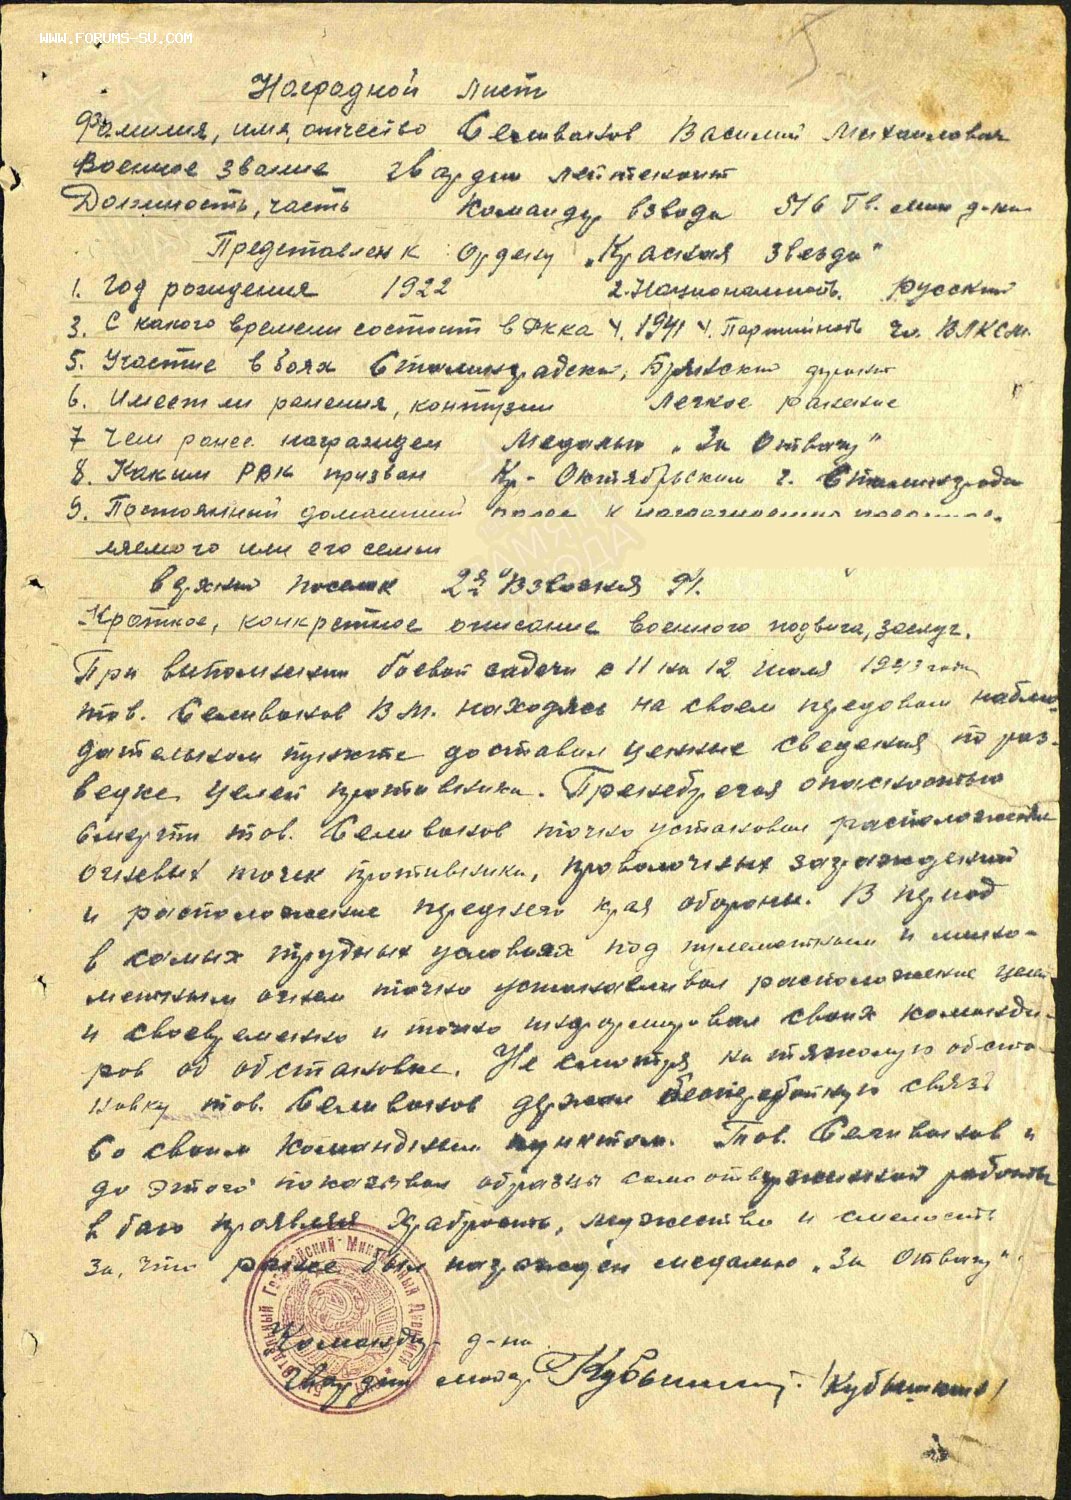 WWW.FORUMS-SU.COM
5
Наградной лист
Фамилия, имя, отчество Селиванов Василий Михайлович
Военное звание гвардии лейтенант
Должность, часть Командир взвода 516 Гв. мин д-на
Представлен к ордену „Красная Звезда"
1. Год рождения 1922 2. Национальность. русский
3. С какого времени состоит в РККА с 1941 4. Партийность чл. ВЛКСМ.
5. Участие в боях Сталинградский, Брянский фронт
6. Имеет ли ранения, контузии легкое ранение
7 Чем ранее награжден Медалью „За Отвагу"
8. Каким РВК призван Кр-Октябрьским г. Сталинграда
9. Постоянный домашний
ляемого или его семьи
поселок 2я
Краткое, конкретное описание военного подвига, заслуг.
При выполнении боевой задачи с 11 на 12 июля 1943 года
тов. Селиванов В.М. находясь на своем передовом наблю-
дательном пункте доставил ценные сведения по раз-
ведке целей противника. Пренебрегая опасностью
смерти тов. Селиванов точно установил расположение
огневых точек противника, проволочных заграждений
и расположение переднего края обороны. В период
в самых трудных условиях под пулеметным и мино-
метным огнем точно устанавливал расположение целей
и своевременно и точно информировал своих команди-
ров об обстановке. Не смотря на тяжелую обста-
новку тов. Селиванов держал бесперебойную связь
со своим командным пунктом. Тов. Селиванов и
до этого показывал образцы самоотверженной работы
в бою проявляя храбрость, мужество и смелость
за, что ранее был награжден медалью „За Отвагу".
Командир д-на
Гвардии майор Кубышкин /Кубышкин/
Отдельный Гвардейский Минометный Дивизион